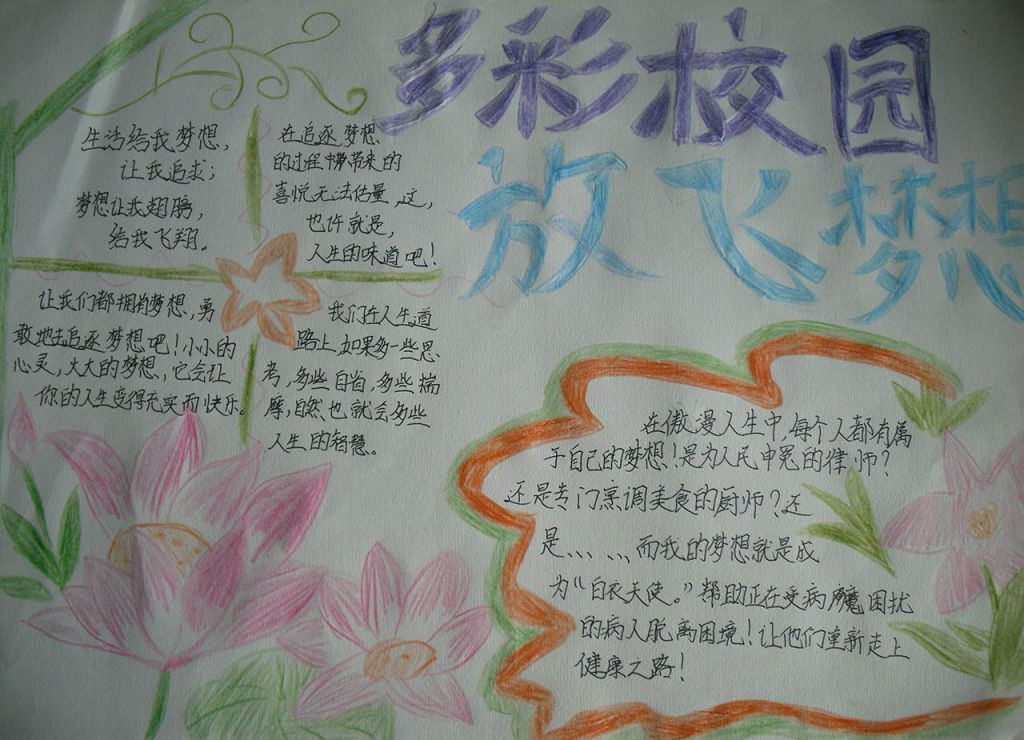 多彩校园
放飞梦想
生活给我梦想，
让我追求；
梦想让我翅膀，
给我飞翔。
在追逐梦想
的过程中带来的
喜悦无法估量，这，
也许就是，
人生的味道吧！
让我们都拥有梦想，勇
敢地去追逐梦想吧！小小的
心灵，大大的梦想，它会让
你的人生变得充实而快乐。
我们在人生道
路上，如果多一些思
考，多些自省，多些揣
摩，自然也就会多些
人生的智慧。
在傲漫人生中，每个人都有属
于自己的梦想！是为人民申冤的律师？
还是专门烹调美食的厨师？还
是、、、、、而我的梦想就是成
为“白衣天使。”帮助正在受病魔困扰
的病人脱离困境！让他们重新走上
健康之路！